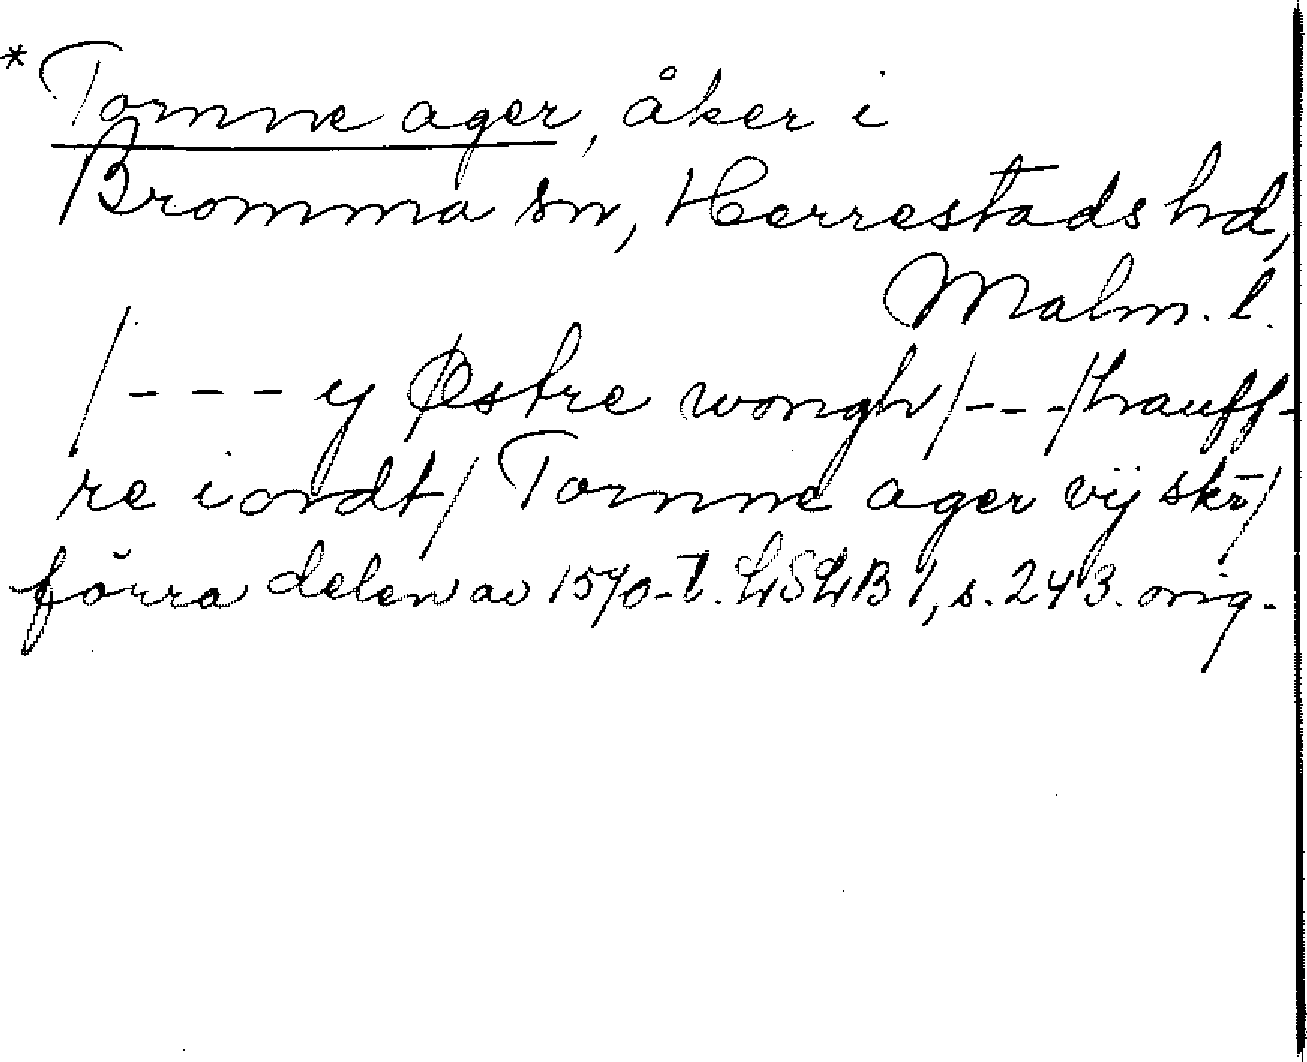 * Tornne ager, åker i
Bromma sn, Herrestads hd,
Malm. l.
/--- y Østre wongh/---/hauff-
re iordt/ Tornne ager vij skr/
förra delen av 1570-t. LSLB 1, s. 243. orig.